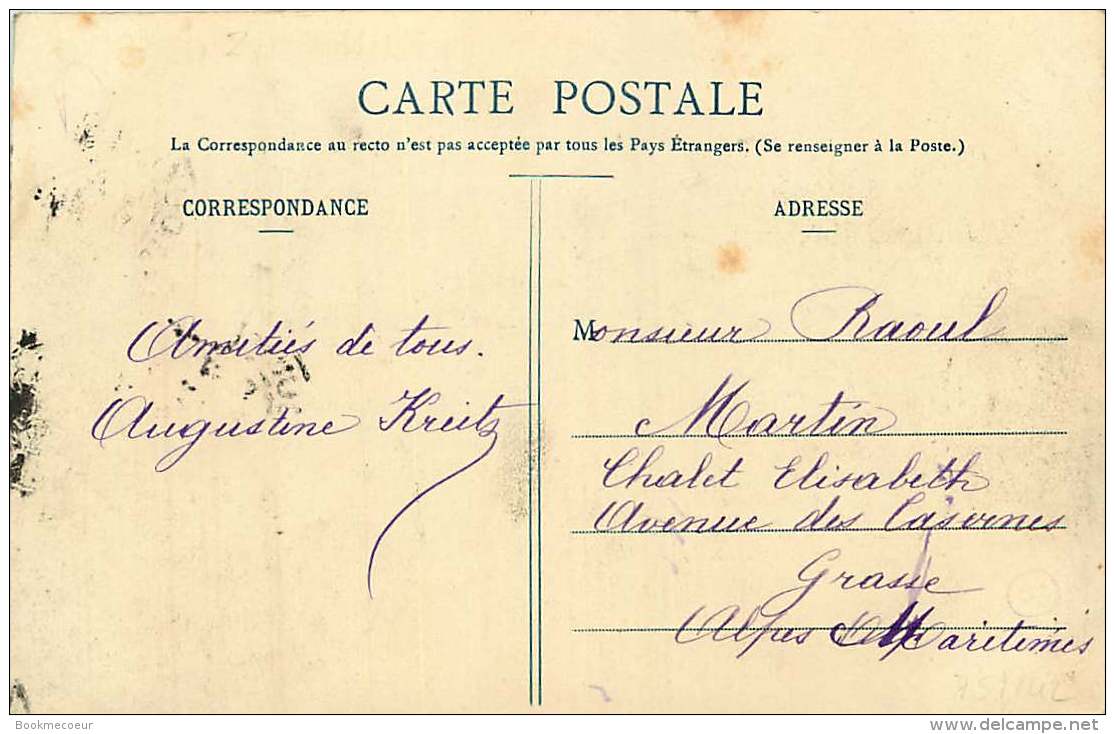 CARTE POSTALE
La Correspondance au recto n'est pas acceptée par tous les Pays Étrangers. (Se renseigner à la Poste.)
CORRESPONDANCE
Amitiés de tous.
Augustine Kreitz
ADRESSE
Monsieur Raoul
Martin
Chalet Elisabeth
Avenue des Casernes
Grasse
Alpes Maritimes
Bookmecoeur
www.delcampe.net